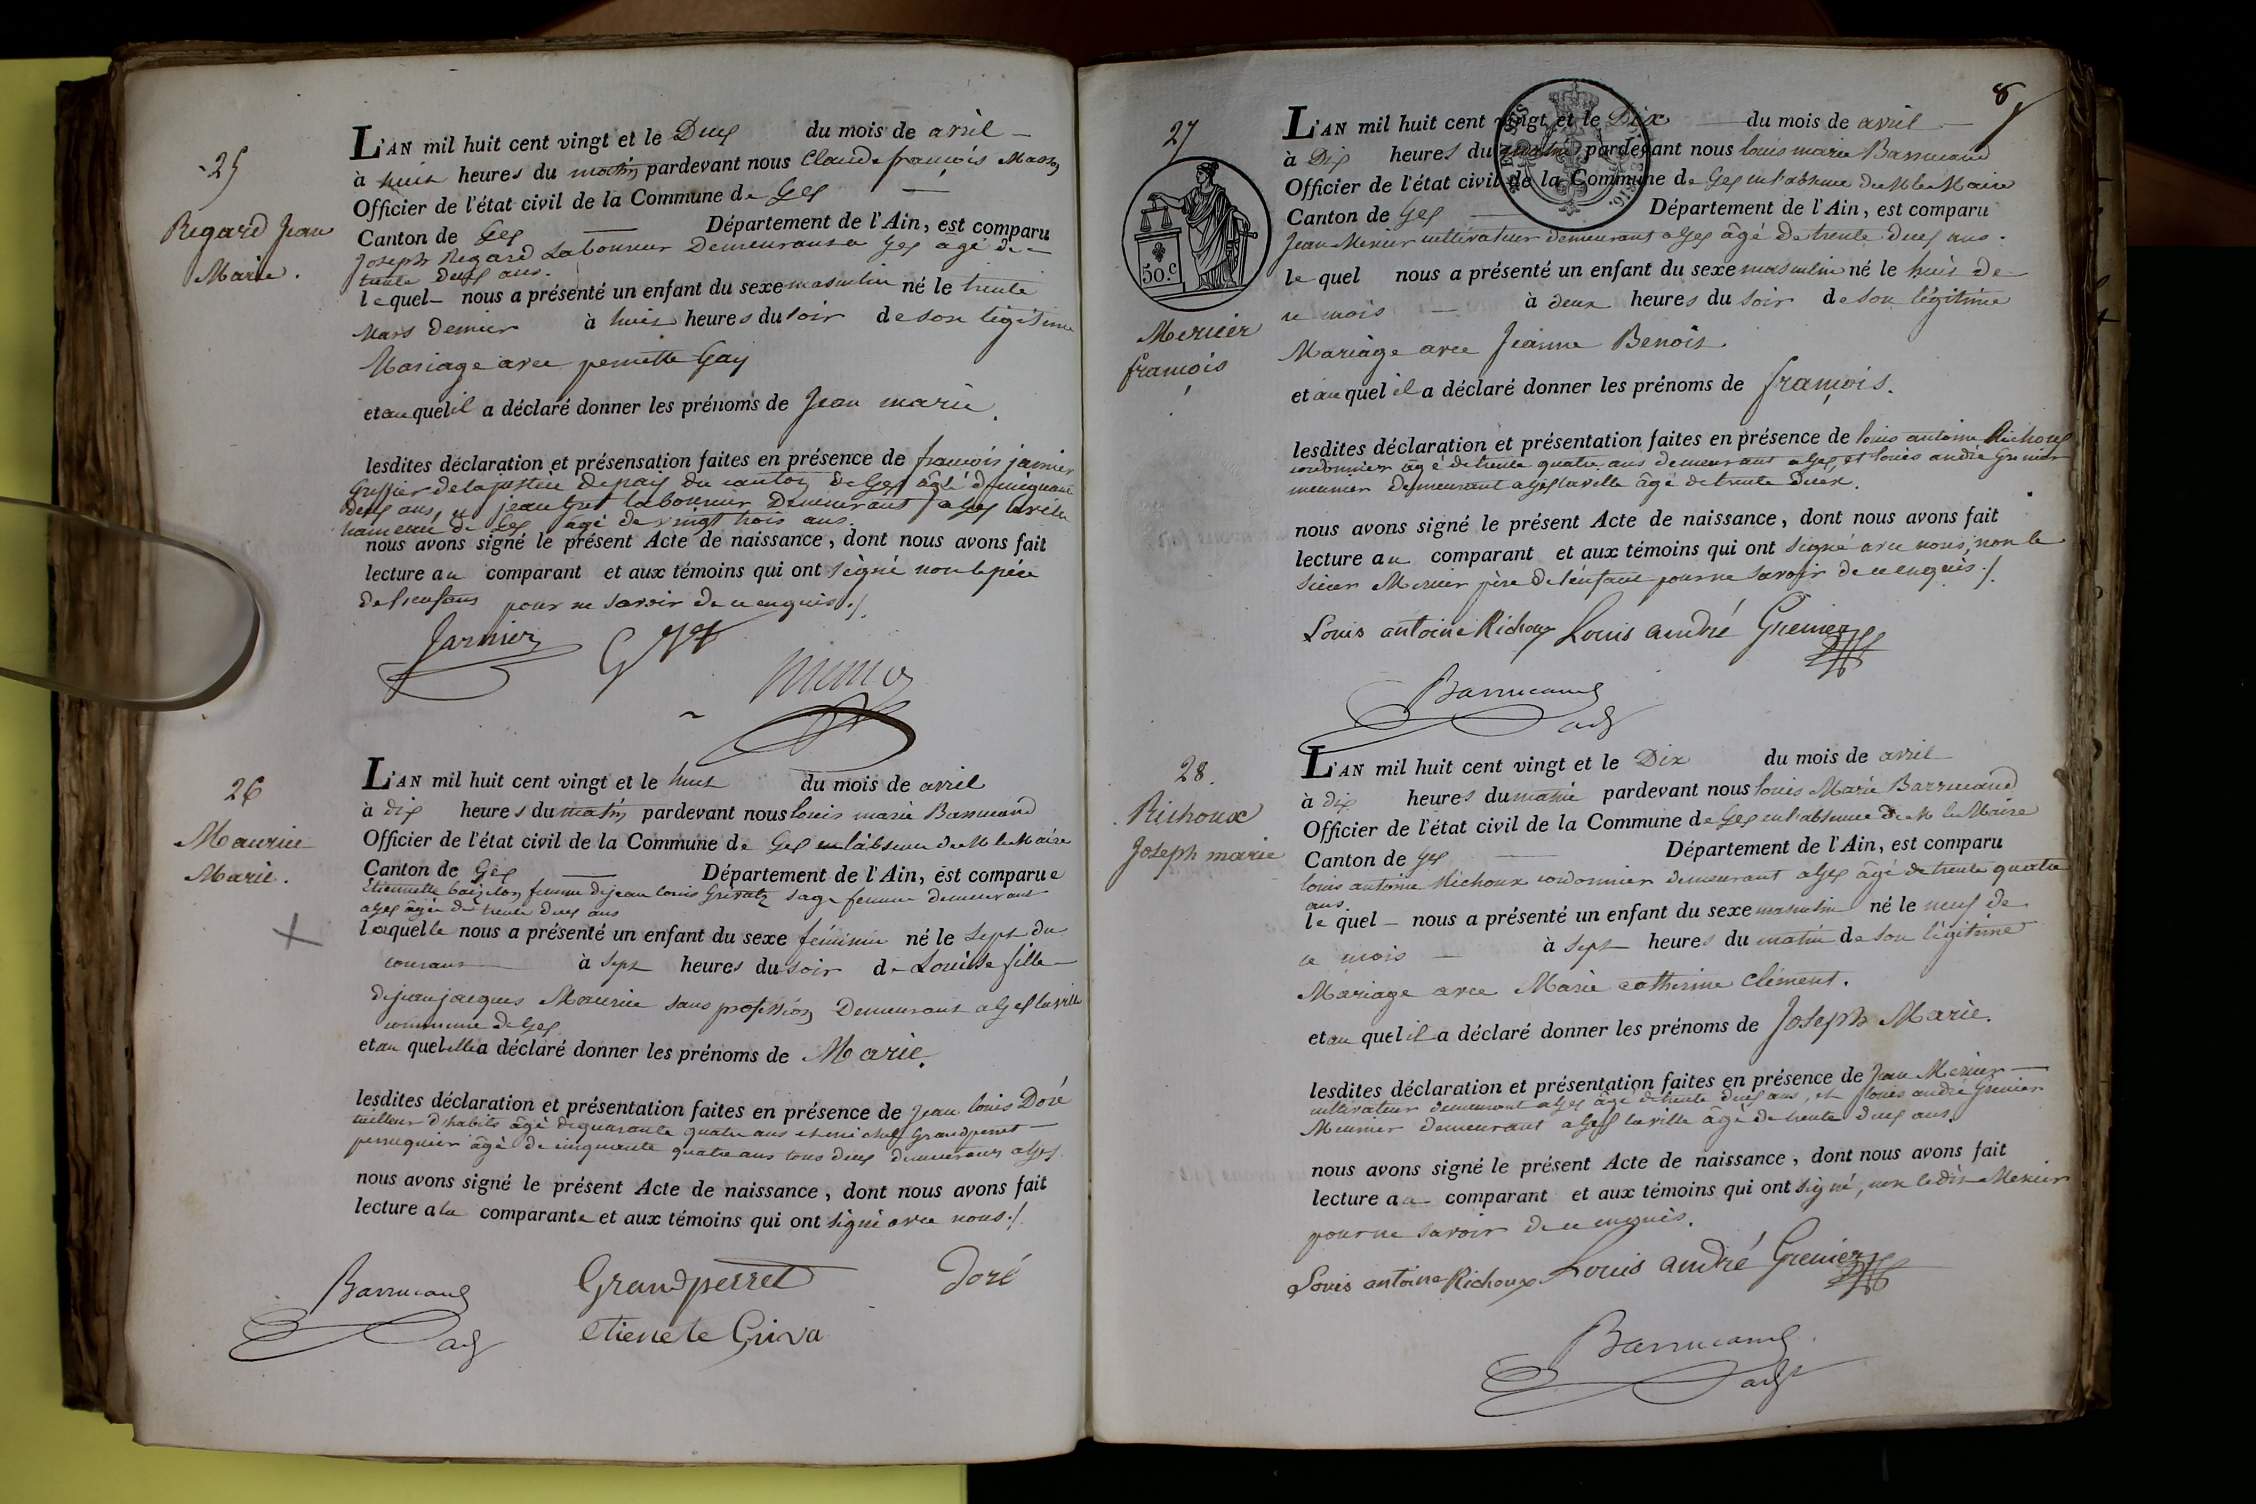 25
Regard Jean
Marie.
L'AN mil huit cent vingt et le Deux du mois de avril
à huit heures du matin pardevant nous Claude françois
Officier de l'état civil de la Commune de Gex
Canton de Gex Département de l'Ain, est comparu
Joseph Regard Laboureur Demeurant a Gex âgé de
trente deux ans.
lequel nous a présenté un enfant du sexe masculin né le trente
Mars dernier à huit heures du soir de son légitime
Mariage avec pernette Gay
et au quel il a déclaré donner les prénoms de Jean marie.
lesdites déclaration et présensation faites en présence de françois jarnier
Greffier de la justice de paix du canton de Gex âgé de cinquante
deux ans, et jean laboureur Demeurant a Gex la ville
hameau de Gex âgé de vingt trois ans.
nous avons signé le présent Acte de naissance, dont nous avons fait
lecture au comparant et aux témoins qui ont signé non le père
de l'enfant pour ne savoir de ce enquis ./.
Jarnier
26
Maurice
Marie.
L'AN mil huit cent vingt et le huit du mois de avril
à dix heures du matin pardevant nous louis marie Barrucand
Officier de l'état civil de la Commune de Gex en l'absence de M le Maire
Canton de Gex Département de l'Ain, est comparue
Etiennette femme de jean louis Grivatz sage femme demeurant
a Gex âgée de trente deux ans
laquelle nous a présenté un enfant du sexe féminin né le sept du
courant à sept heures du soir de Louise fille
de jean jacques Maurice sans profession Demeurant a Gex la ville
commune de Gex
et au quel elle a déclaré donner les prénoms de Marie.
lesdites déclaration et présentation faites en présence de Jean louis Doré
tailleur d'habits âgé de quarante quatre ans et michel Grandperret
perruquier âgé de cinquante quatre ans tous deux demeurant a Gex
nous avons signé le présent Acte de naissance, dont nous avons fait
lecture a la comparante et aux témoins qui ont signé avec nous ./.
Barrucand adj
Grandperret
Doré
etienete Griva
8
27
50.c
Mercier
françois
L'AN mil huit cent vingt et le Dix du mois de avril
à Dix heures du matin pardevant nous louis marie Barrucand
Officier de l'état civil de la Commune de Gex en l'absence de M le Maire
Canton de Gex Département de l'Ain, est comparu
Jean Mercier cultivateur demeurant a Gex âgé de trente deux ans.
le quel nous a présenté un enfant du sexe masculin né le huit de
ce mois à deux heures du soir de son légitime
Mariage avec Jeanne Benoit.
et au quel il a déclaré donner les prénoms de françois.
lesdites déclaration et présentation faites en présence de louis antoine Richoux
cordonnier âgé de trente quatre ans demeurant a Gex, et louis andré Grenier
meunier demeurant a Gex la ville âgé de trente deux.
nous avons signé le présent Acte de naissance, dont nous avons fait
lecture au comparant et aux témoins qui ont signé avec nous, non le
sieur Mercier père de l'enfant pour ne savoir de ce enquis ./.
Louis antoine Richoux Louis andré Grenier
Barrucand
adj
28.
Richoux
Joseph marie
L'AN mil huit cent vingt et le Dix du mois de avril
à dix heures du matin pardevant nous louis Marie Barrucand
Officier de l'état civil de la Commune de Gex en l'absence de M le Maire
Canton de Gex Département de l'Ain, est comparu
louis antoine Richoux cordonnier demeurant a Gex âgé de trente quatre
ans.
le quel nous a présenté un enfant du sexe masculin né le neuf de
ce mois à sept heures du matin de son légitime
Mariage avec Marie catherine Clément.
et au quel il a déclaré donner les prénoms de Joseph Marie.
lesdites déclaration et présentation faites en présence de Jean Mercier
cultivateur demeurant a Gex âgé de trente deux ans, et louis andré Grenier
Meunier demeurant a Gex la ville âgé de trente deux ans.
nous avons signé le présent Acte de naissance, dont nous avons fait
lecture au comparant et aux témoins qui ont signé, non le dit Mercier
pour ne savoir de ce enquis.
Louis antoine Richoux Louis andré Grenier
Barrucand
adj